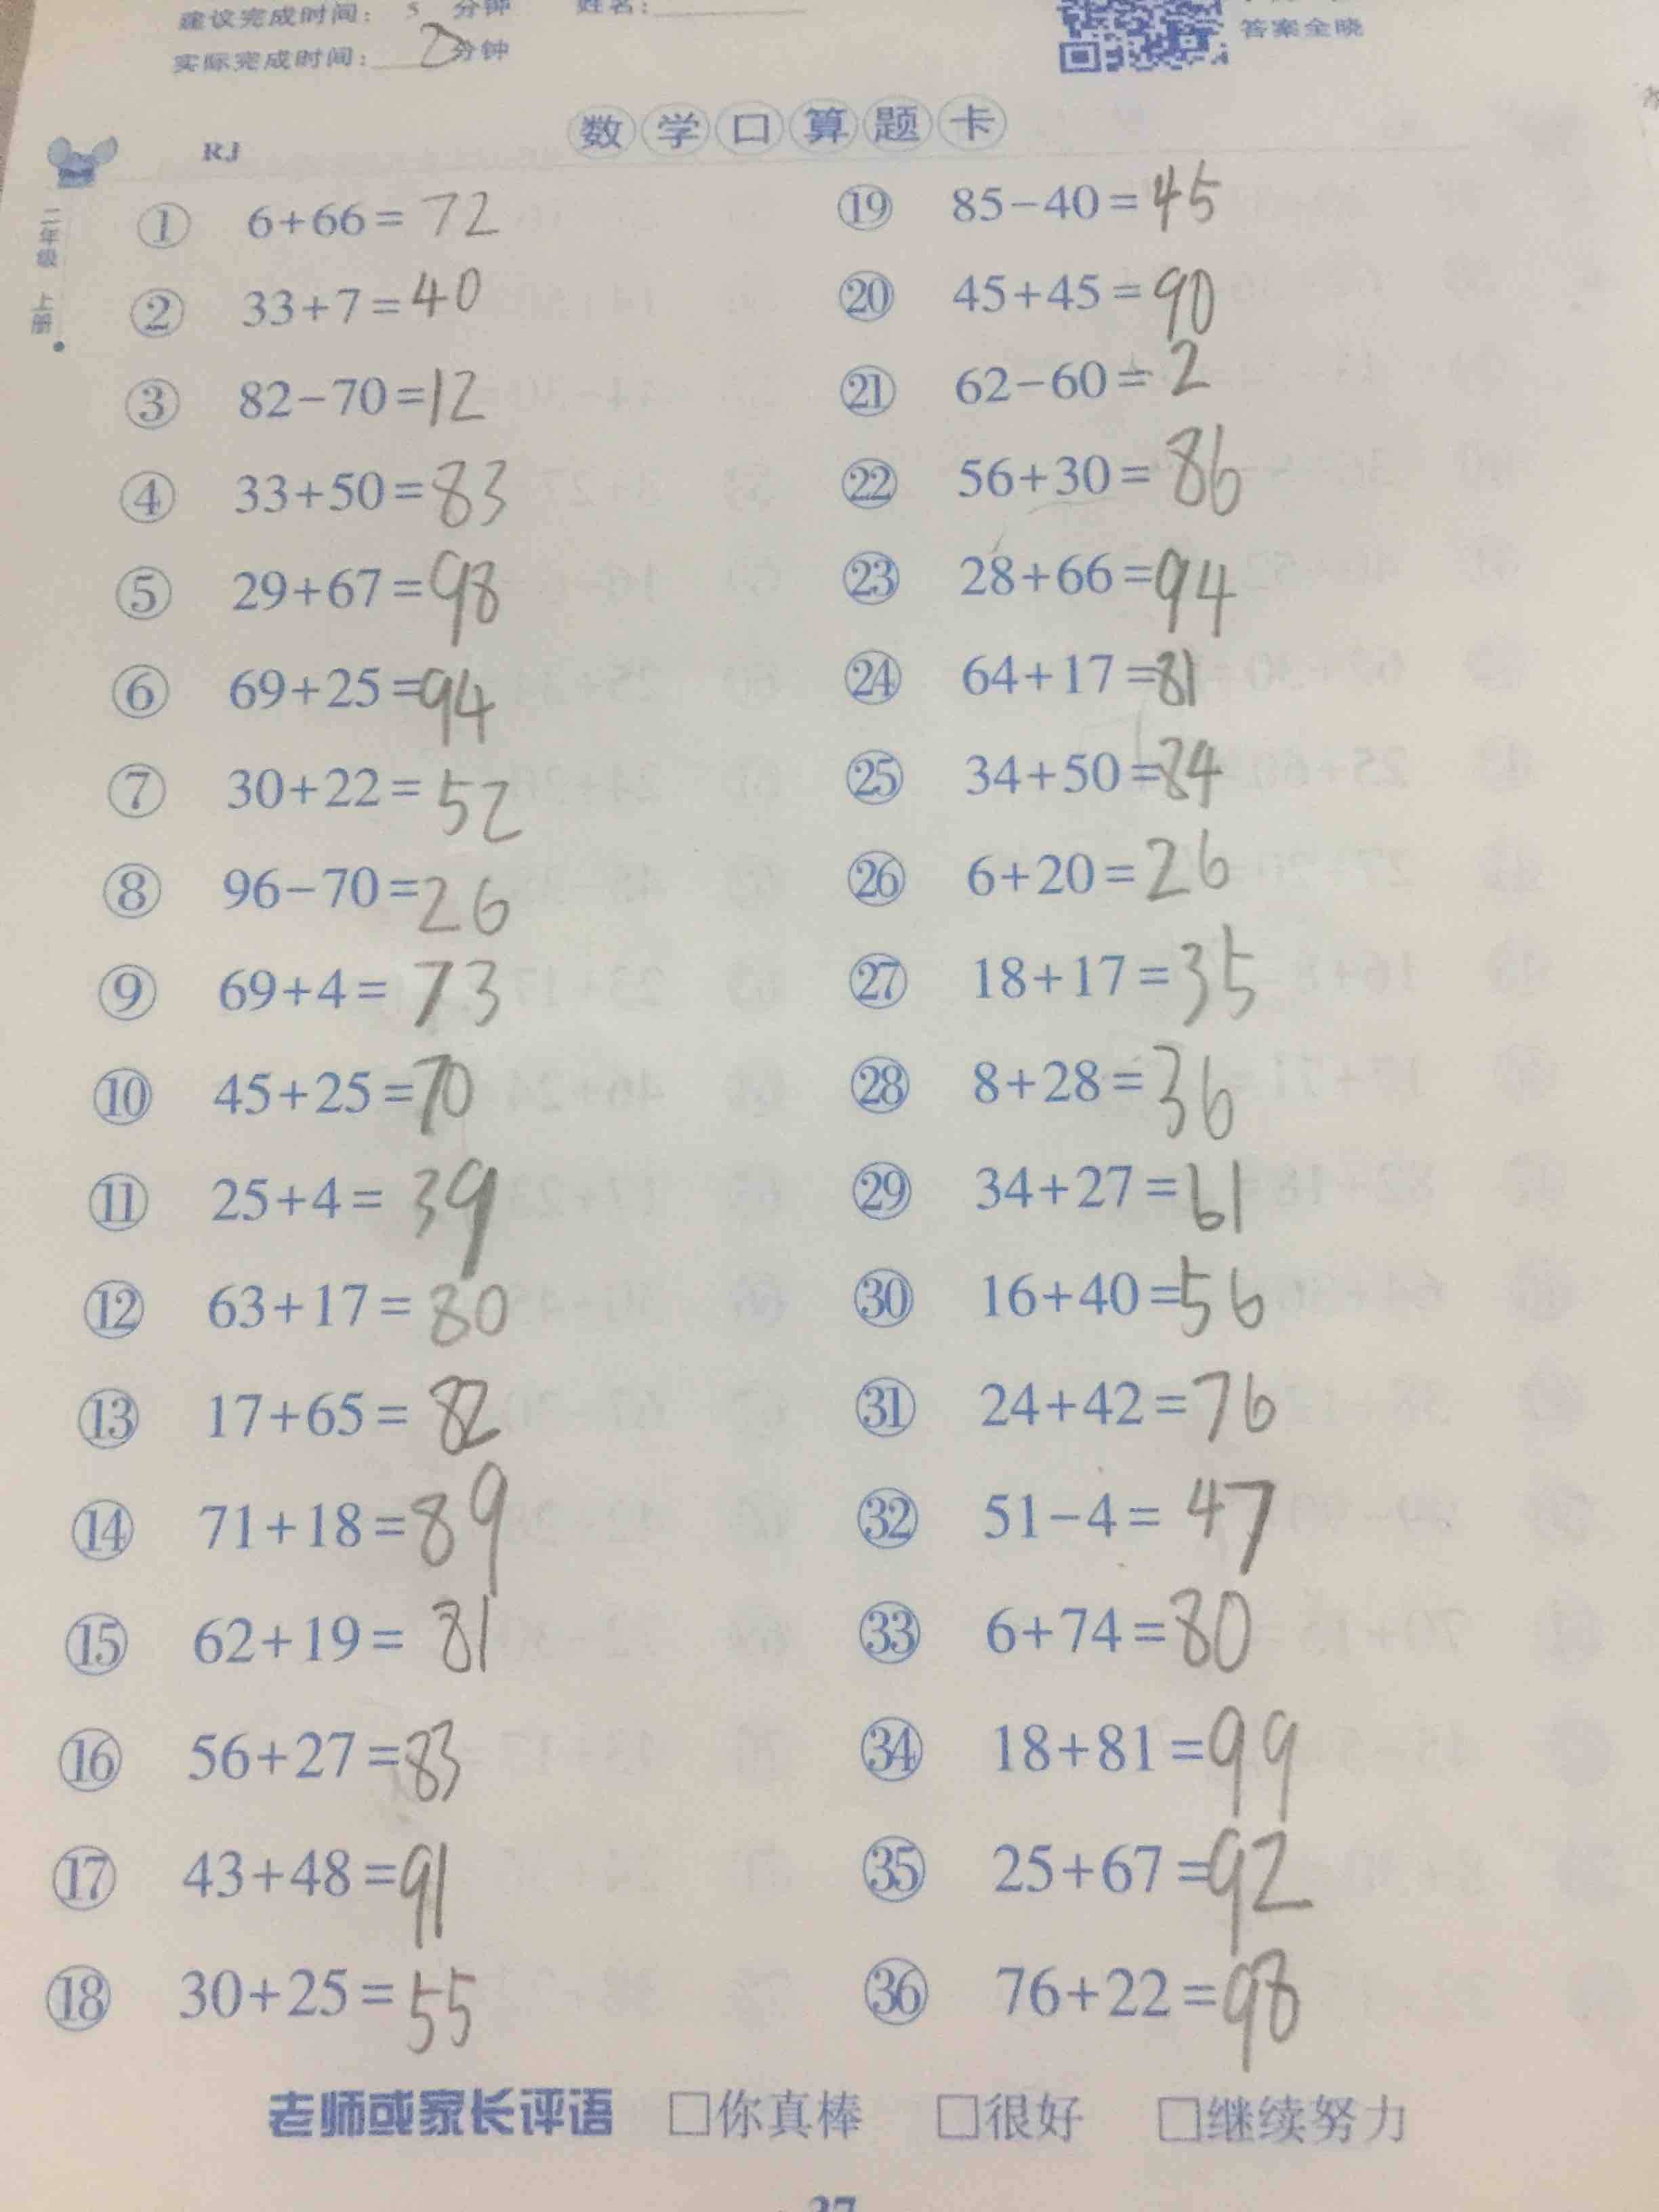 建议完成时间: 5 分钟 姓名:
实际完成时间: 2 分钟
答案全晓
数学口算题卡
RJ
二年级 上册
① 6+66=72
② 33+7=40
③ 82-70=12
④ 33+50=83
⑤ 29+67=98
⑥ 69+25=94
⑦ 30+22=52
⑧ 96-70=26
⑨ 69+4=73
⑩ 45+25=70
⑪ 25+4=39
⑫ 63+17=80
⑬ 17+65=82
⑭ 71+18=89
⑮ 62+19=81
⑯ 56+27=83
⑰ 43+48=91
⑱ 30+25=55
⑲ 85-40=45
⑳ 45+45=90
㉑ 62-60=2
㉒ 56+30=86
㉓ 28+66=94
㉔ 64+17=81
㉕ 34+50=84
㉖ 6+20=26
㉗ 18+17=35
㉘ 8+28=36
㉙ 34+27=61
㉚ 16+40=56
㉛ 24+42=76
㉜ 51-4=47
㉝ 6+74=80
㉞ 18+81=99
㉟ 25+67=92
㊱ 76+22=98
老师或家长评语 □你真棒 □很好 □继续努力